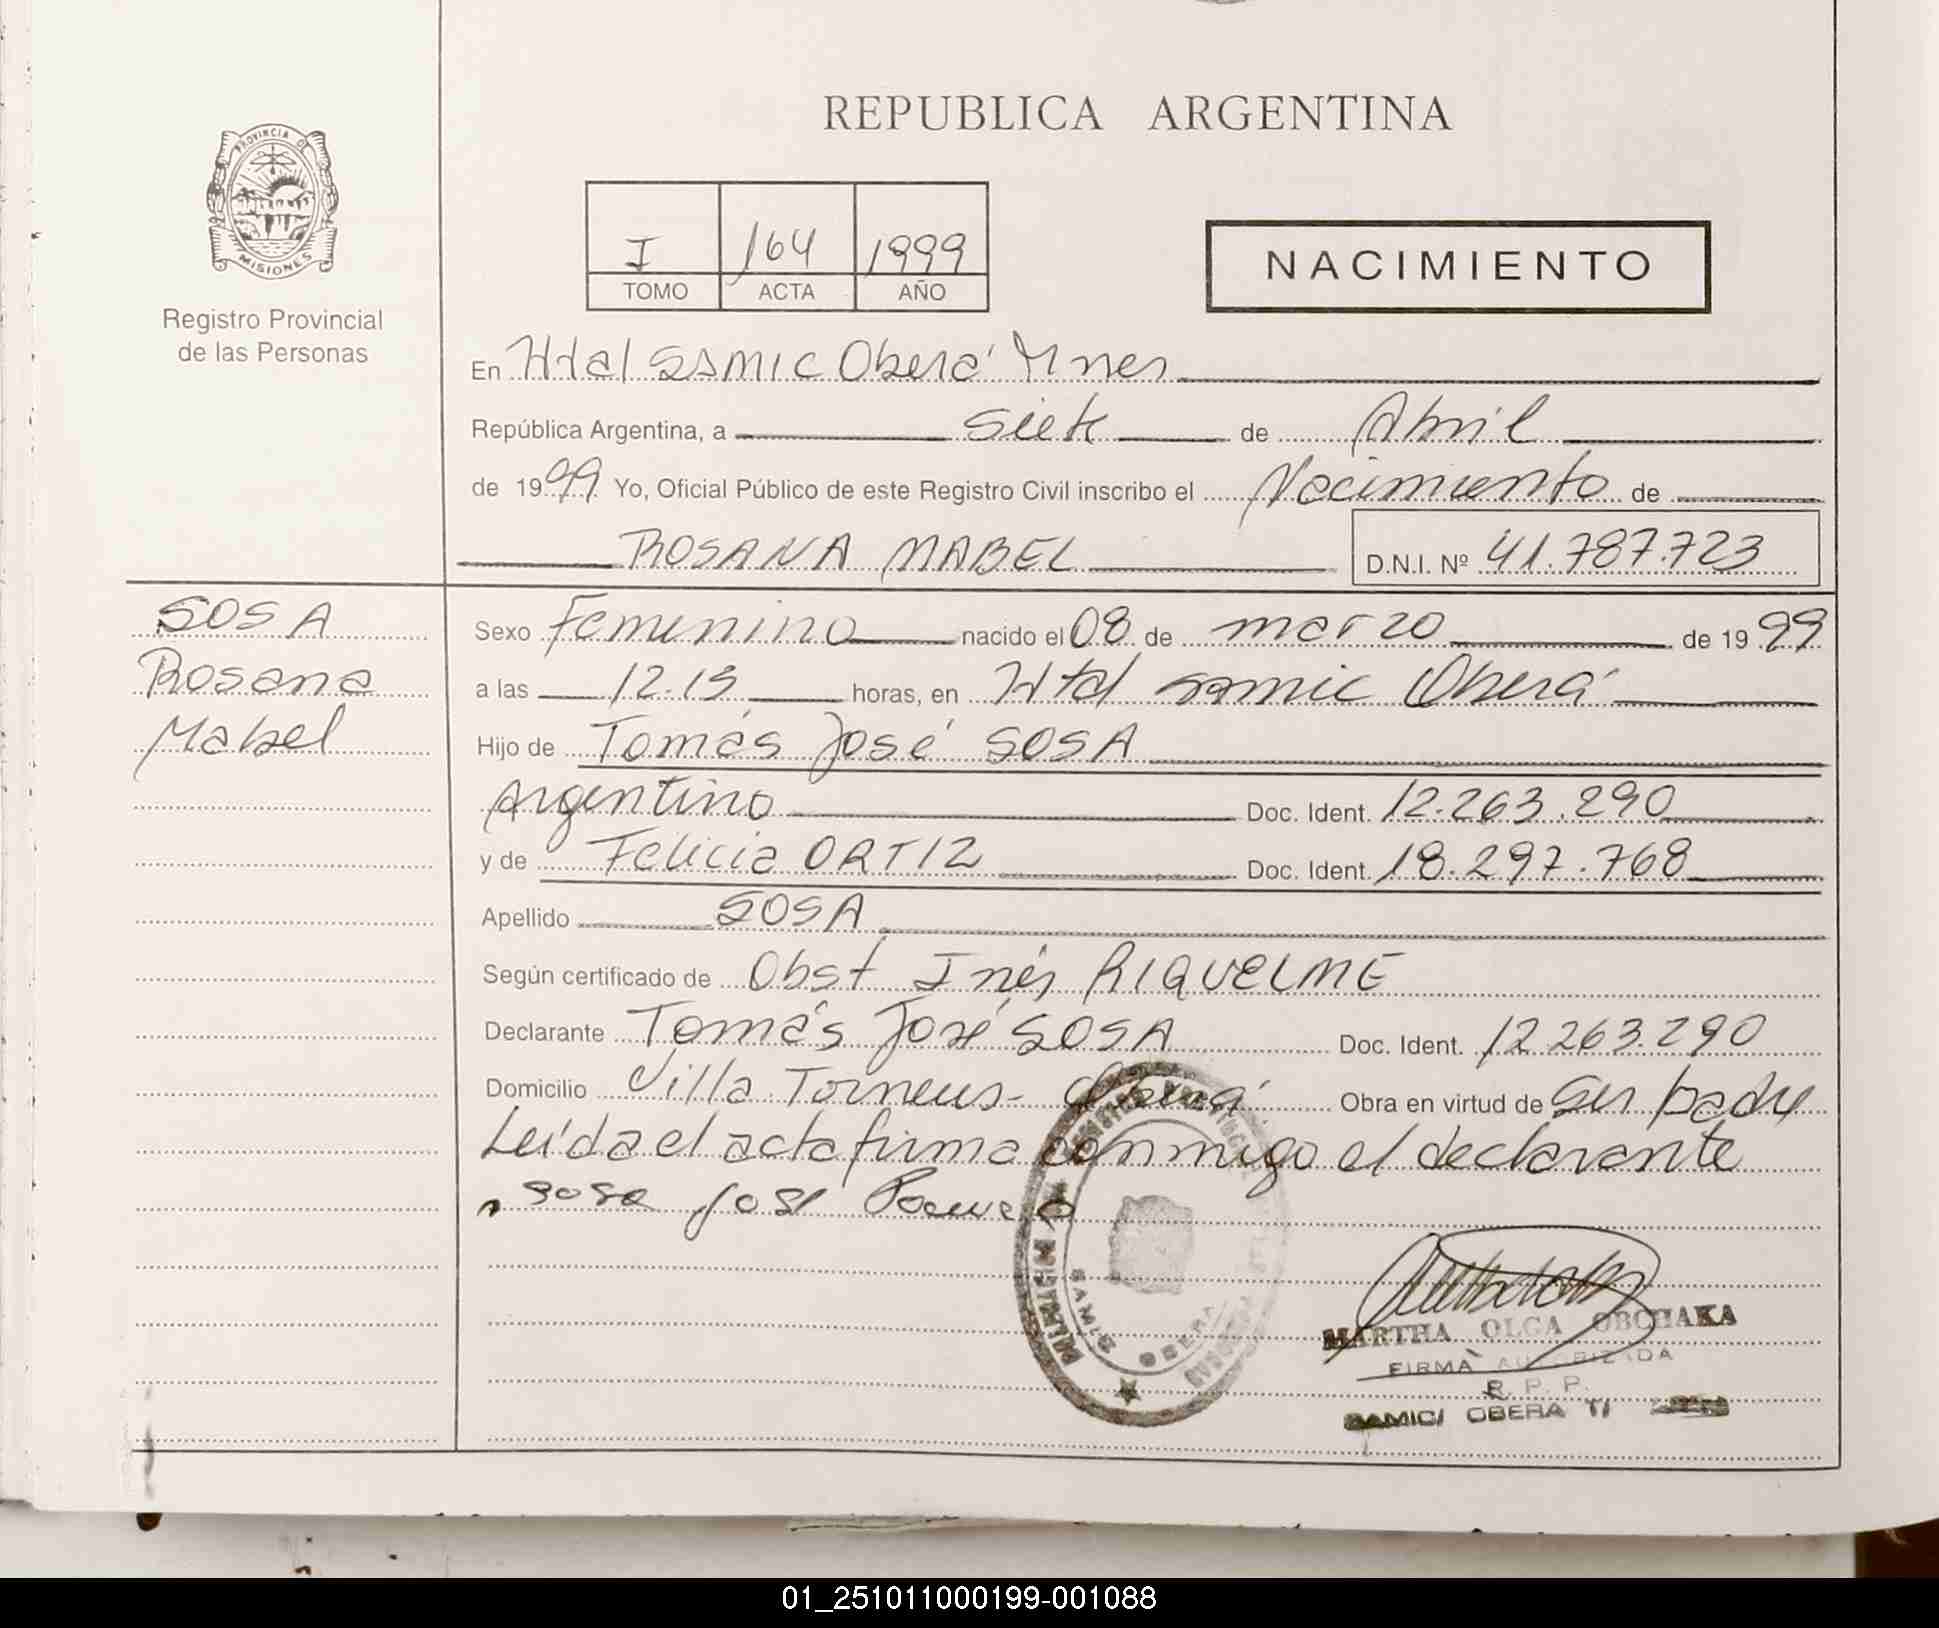 REPUBLICA ARGENTINA
PROVINCIA DE
MISIONES
Registro Provincial
de las Personas
I 164 1999
TOMO ACTA AÑO
NACIMIENTO
En Htal SAMIC Oberá Mnes
República Argentina, a siete de Abril
de 1999 Yo, Oficial Público de este Registro Civil inscribo el Nacimiento de
ROSANA MABEL D.N.I. Nº 41.787.723
SOSA
Rosana
Mabel
Sexo Femenino nacido el 08 de marzo de 1999
a las 12.15 horas, en Htal samic Oberá
Hijo de Tomás José SOSA
Argentino Doc. Ident. 12.263.290
y de Felicia ORTIZ Doc. Ident. 18.297.768
Apellido SOSA
Según certificado de Obst Inés RIQUELME
Declarante Tomás José SOSA Doc. Ident. 12.263.290
Domicilio Villa Torneus - Oberá Obra en virtud de ser padre
Leída el acta firma conmigo el declarante
sosa jose
MARTHA OLGA OBCHAKA
FIRMA AUTORIZADA
R. P. P.
SAMIC/ OBERA
01_251011000199-001088